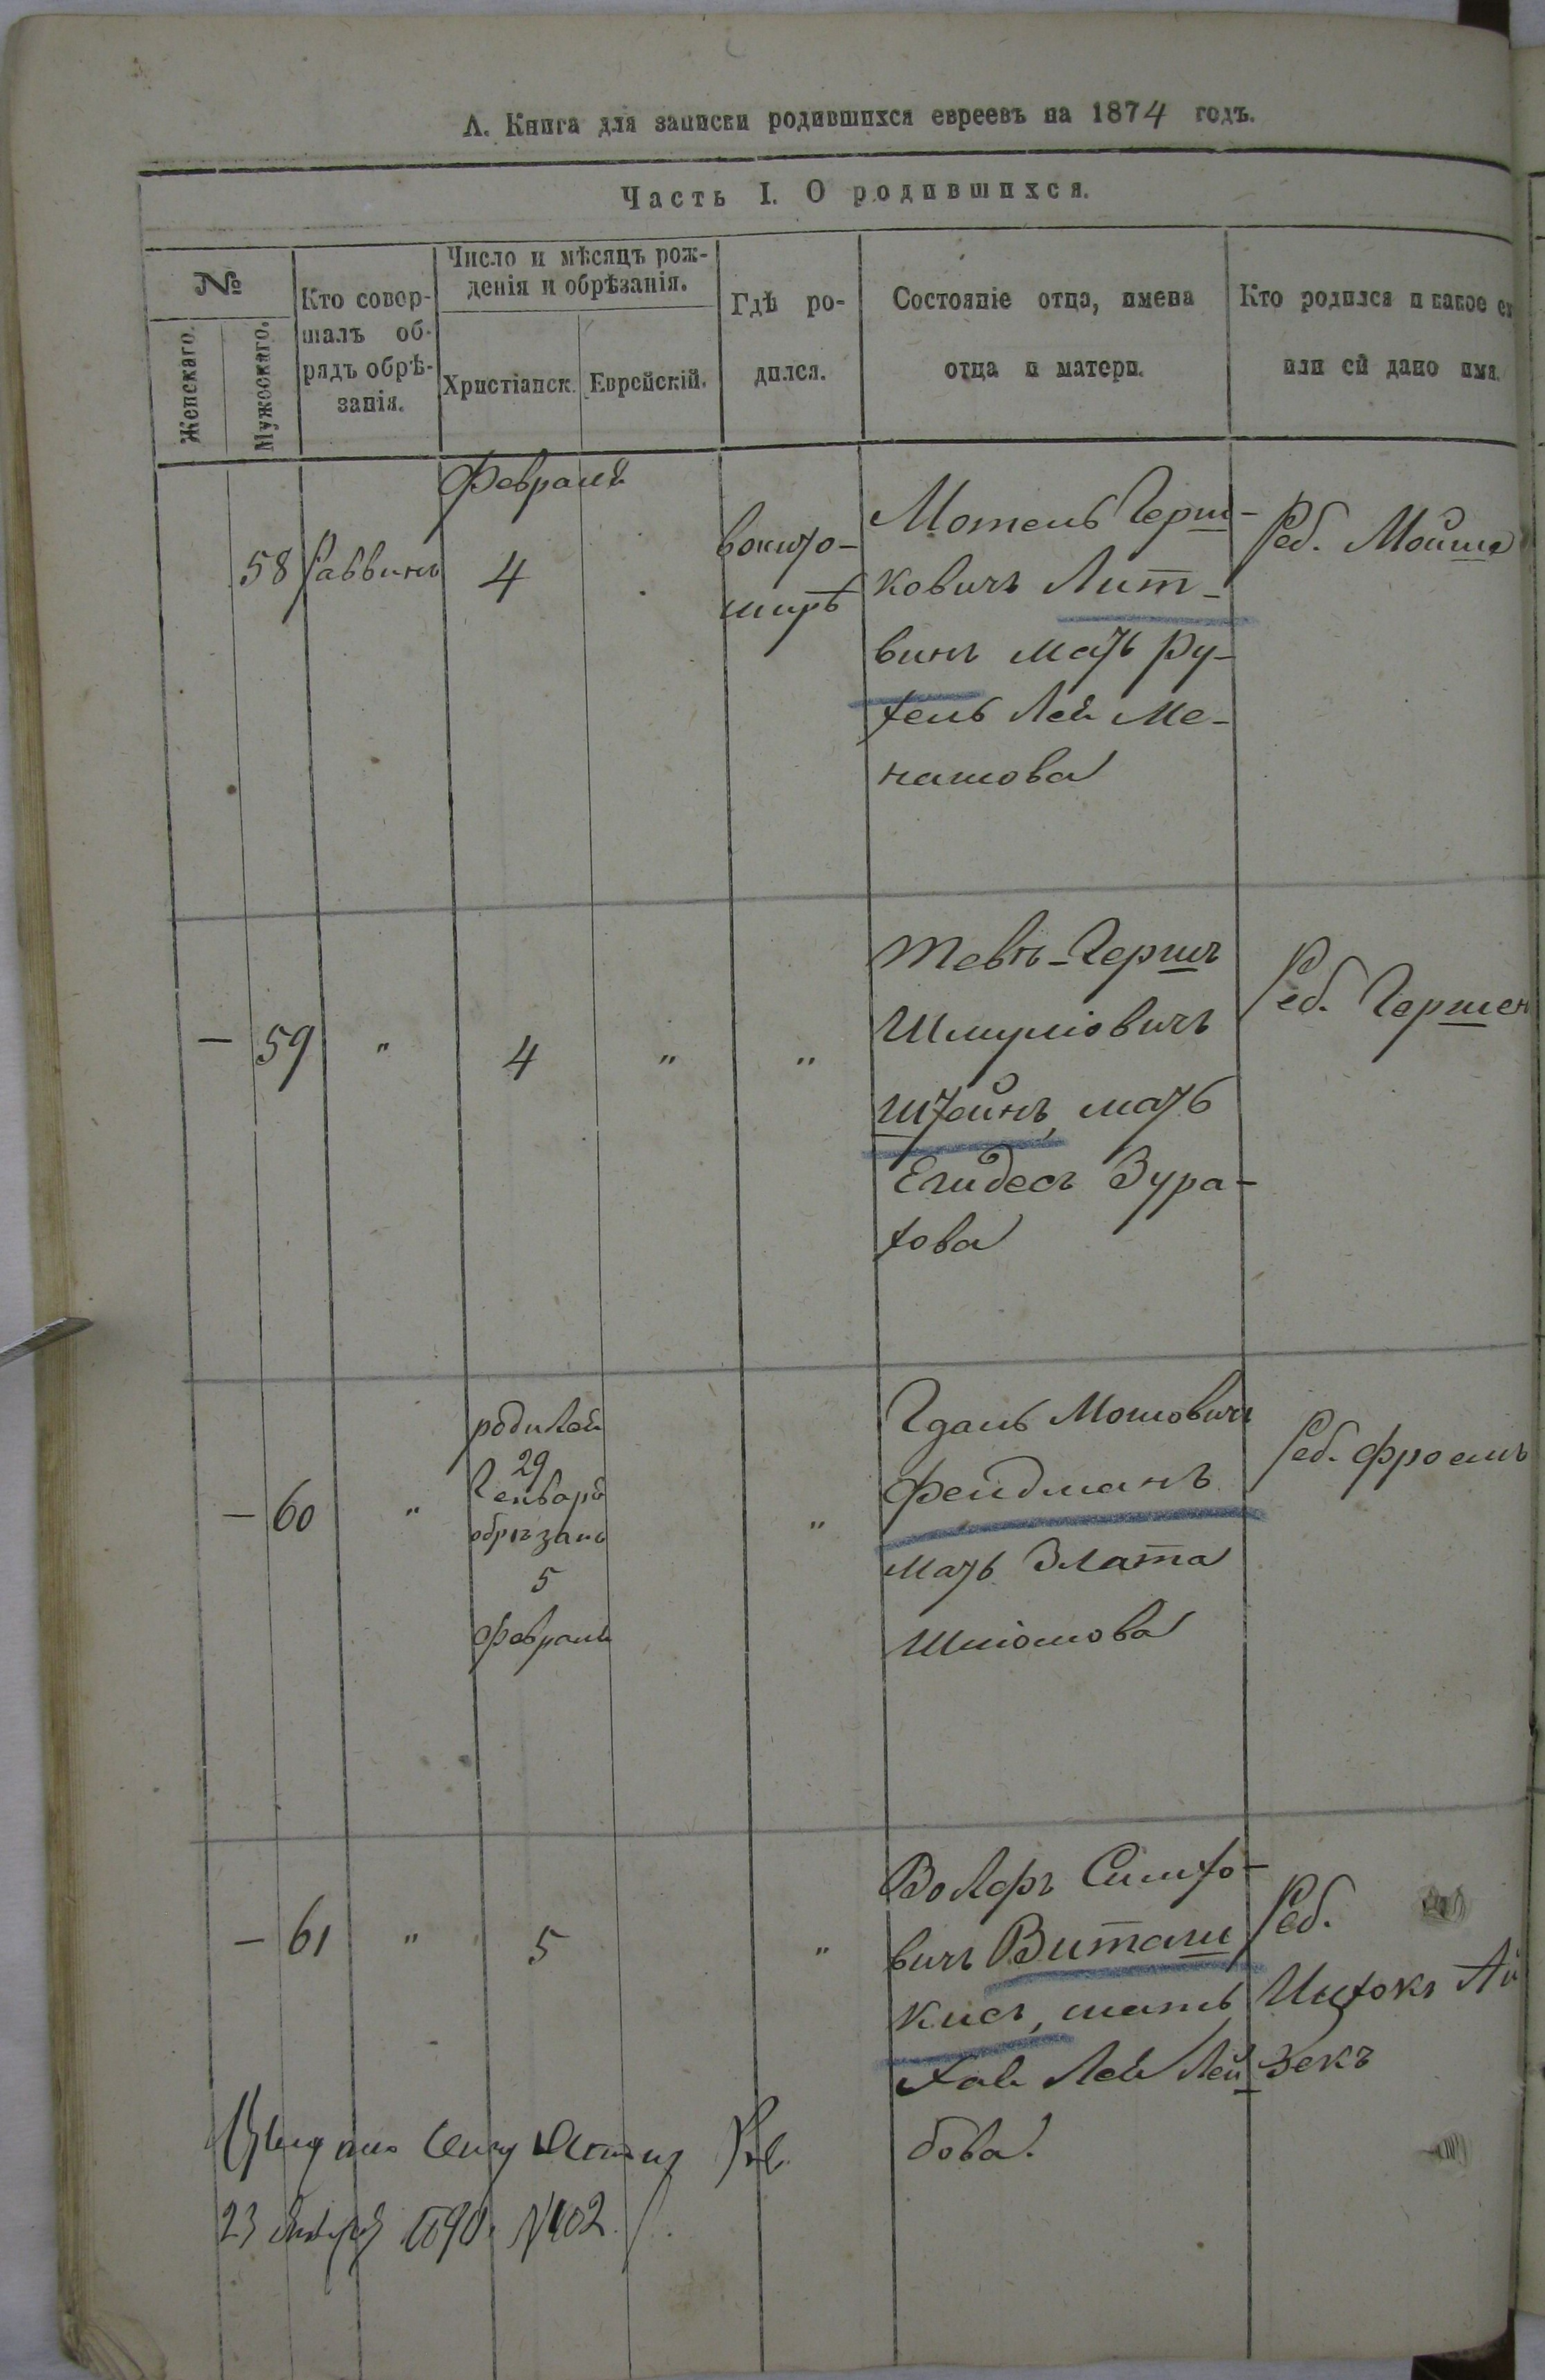 А. Книга для записки родившихся евреевъ на 1874 годъ.
Часть I. О родившихся.
№
Женскаго.
Мужескаго.
Кто совер-
шалъ об-
рядъ обрѣ-
занія.
Число и мѣсяцъ рож-
денія и обрѣзанія.
Христіанск.
Еврейскій.
Гдѣ ро-
дился.
Состояніе отца, имена
отца и матери.
Кто родился и какое ем
или ей дано имя.
Февраля
58
Раввинъ
4
Мотель Герш-
ковичъ Лит-
винъ мать Ру-
хель Лея Ме-
нашова
Реб. Мойше
— 59 " 4 " "
Тевъ-Гершъ
Шмулiовичъ
Штейнъ, мать
Зура-
хова
Реб. Гершен
— 60 " "
родилси
29
Генваря
обрѣзанъ
5
Февраля
Мошковичъ
Фельдманъ
мать Злата
Шліомова
Реб. Фроемъ
— 61 " 5 "
Волфъ Симхо-
вичъ Виташ
кисъ, мать
Хая Лея Лей
бова.
Реб.
Ицхокъ Ай
зекъ
23 1890. №402.